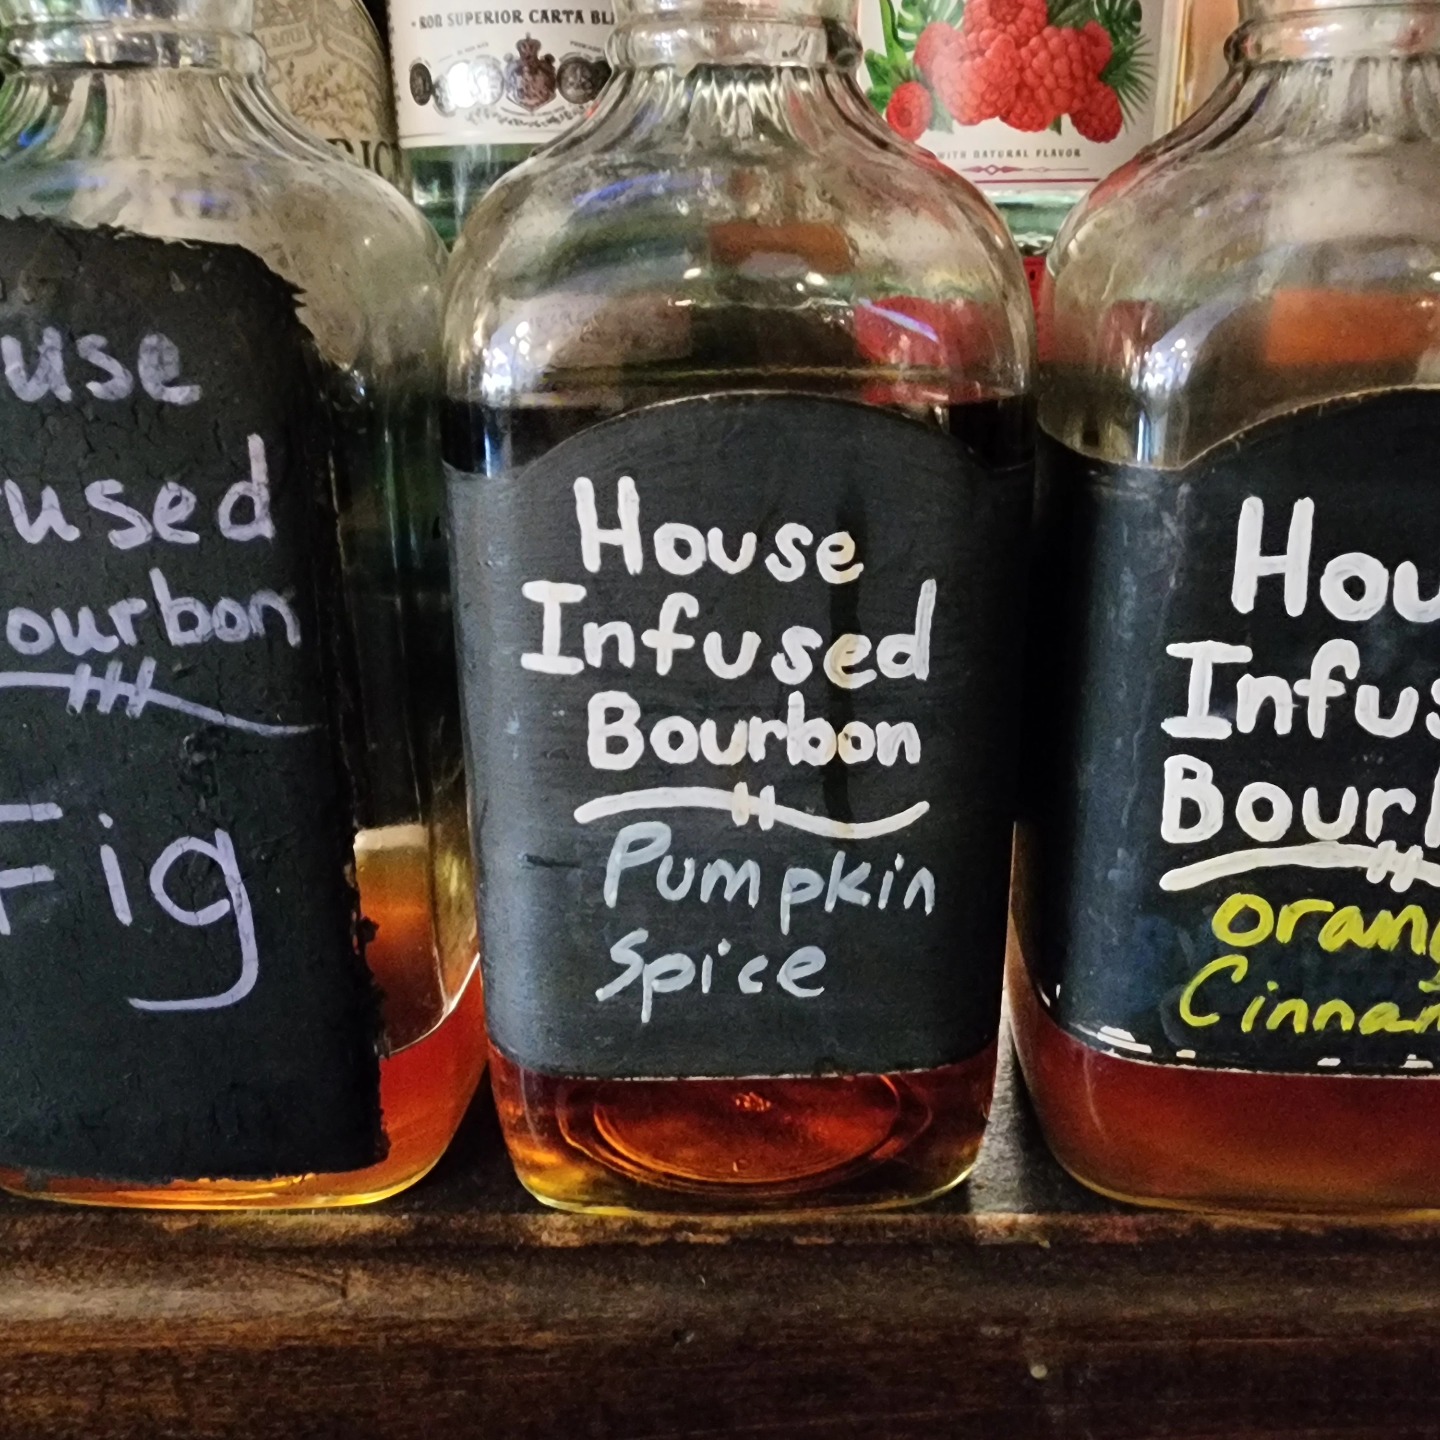 RON SUPERIOR CARTA BL
WITH NATURAL FLAVOR
use
used
ourbon
Fig
House
Infused
Bourbon
Pumpkin
Spice
Hou
Infus
Bour
Orang
Cinnam